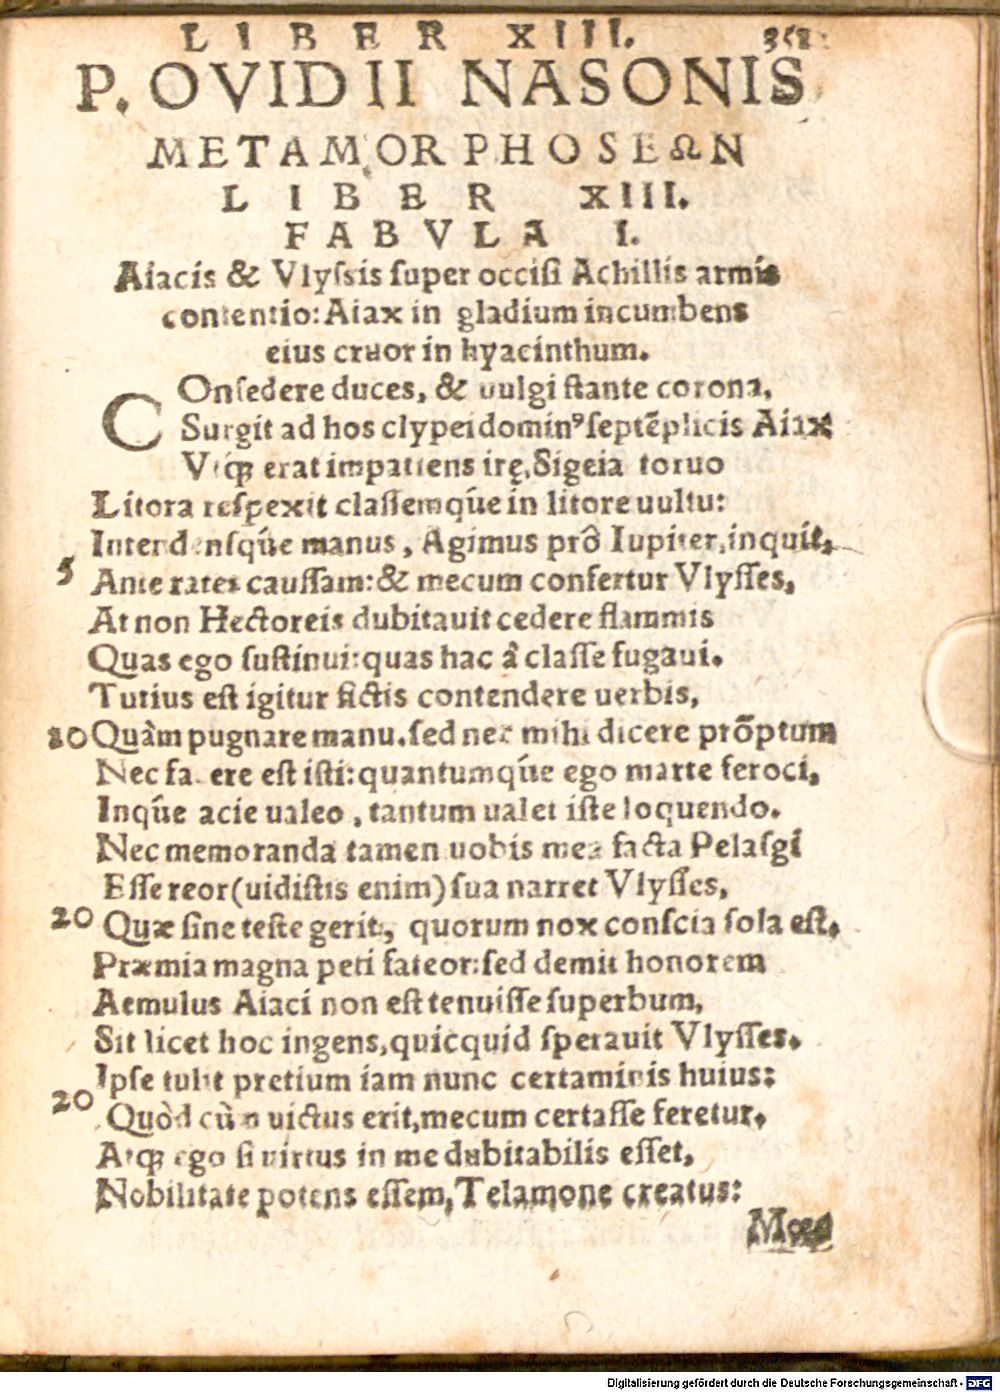 LIBER XIII. 351
P. OVIDII NASONIS
METAMORPHOSEΩN
LIBER XIII.
FABVLA I.
Aiacis & Vlyſsis ſuper occiſi Achillis armis
contentio: Aiax in gladium incumbens
eius cruor in hyacinthum.
COnſedere duces, & uulgi ſtante corona,
Surgit ad hos clypei dominꝰ ſeptẽplicis Aiax
Vtq́ꝫ erat impatiens irę, Sigeia toruo
Litora reſpexit claſſemq́ue in litore uultu:
Intendenſq́ue manus, Agimus prô Iupiter, inquit,
5 Ante rates cauſſam: & mecum confertur Vlyſſes,
At non Hectoreis dubitauit cedere flammis
Quas ego ſuſtinui: quas hac à claſſe fugaui.
Tutius eſt igitur fictis contendere uerbis,
10 Quàm pugnare manu. ſed nec mihi dicere prõptum
Nec facere eſt iſti: quantumq́ue ego marte feroci,
Inq́ue acie ualeo, tantum ualet iſte loquendo.
Nec memoranda tamen uobis mea facta Pelaſgi
Eſſe reor (uidiſtis enim) ſua narret Vlyſſes,
20 Quæ ſine teſte gerit, quorum nox conſcia ſola eſt.
Præmia magna peti fateor: ſed demit honorem
Aemulus Aiaci non eſt tenuiſſe ſuperbum,
Sit licet hoc ingens, quicquid ſperauit Vlyſſes.
Ipſe tulit pretium iam nunc certaminis huius:
20 Quòd cùm uictus erit, mecum certaſſe feretur.
Atq́ꝫ ego ſi uirtus in me dubitabilis eſſet,
Nobilitate potens eſſem, Telamone creatus:
Digitalisierung gefördert durch die Deutsche Forschungsgemeinschaft - DFG